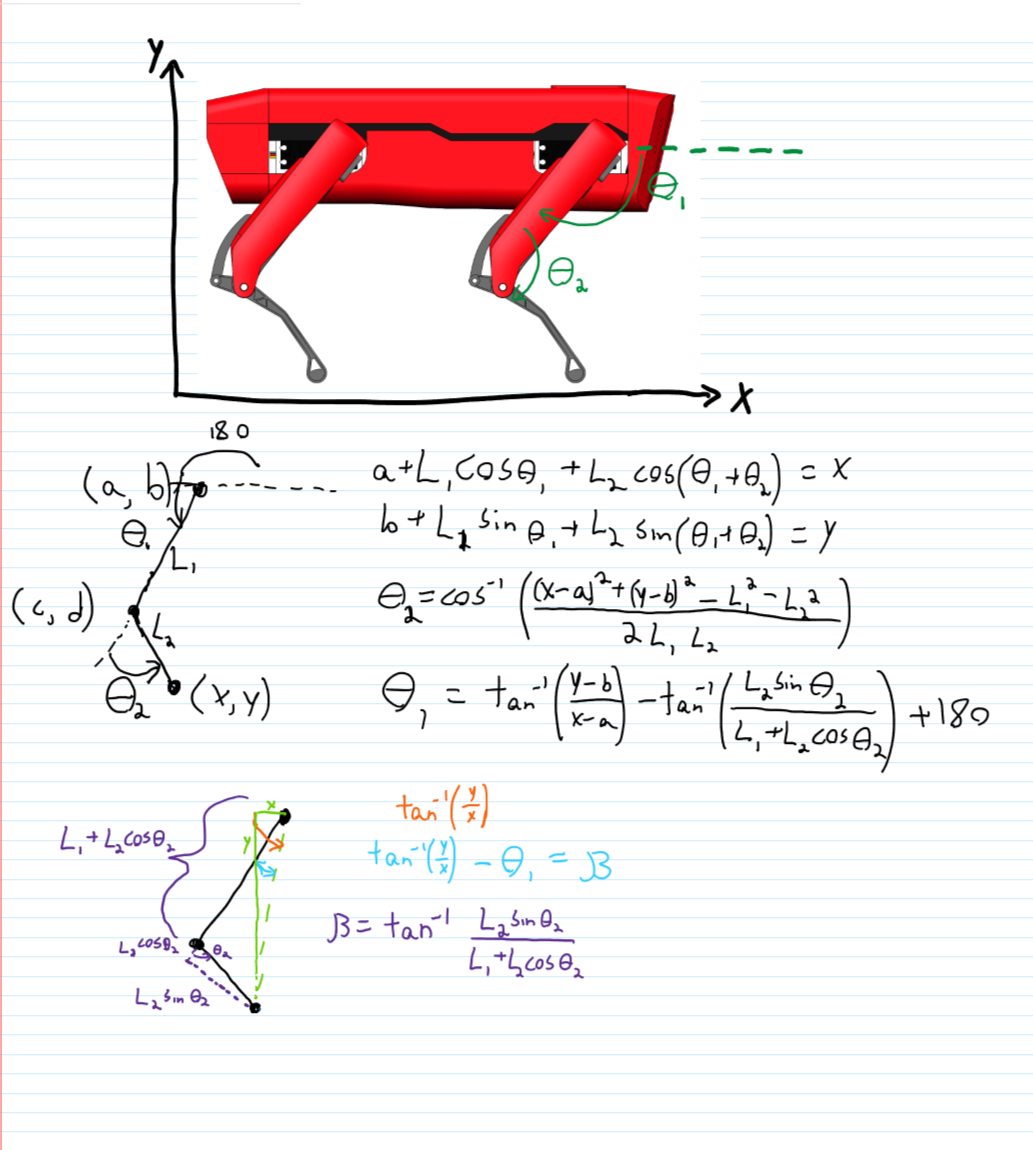 Y
θ₁
θ₂
X
180
(a, b)
θ₁
L₁
(c, d)
L₂
θ₂
(x, y)
a + L₁ cosθ₁ + L₂ cos(θ₁+θ₂) = x
b + L₁ sin θ₁ + L₂ sin(θ₁+θ₂) = y
θ₂ = cos⁻¹ (((x-a)² + (y-b)² - L₁² - L₂²) / (2 L₁ L₂))
θ₁ = tan⁻¹((y-b)/(x-a)) - tan⁻¹((L₂ sin θ₂)/(L₁ + L₂ cosθ₂)) + 180
x
y
L₁ + L₂cosθ₂
L₂ cosθ₂
θ₂
L₂ sin θ₂
tan⁻¹(y/x)
tan⁻¹(y/x) - θ₁ = β
β = tan⁻¹ (L₂ sinθ₂)/(L₁ + L₂cosθ₂)